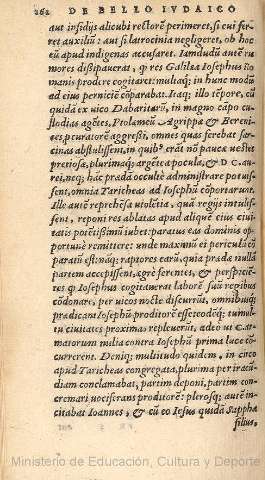 262 DE BELLO IVDAICO
aut insidijs alicubi rectorē perimeret, si cui fer-
ret auxiliū: aut si latrocinia negligeret, ob hoc
eū apud indigenas accusaret. Iamdudū autē ru
mores dissipauerat, ꝙ res Galilæas Iosephus Ro
manis prodere cogitaret: multaꝗ; in hunc modū
ad eius perniciē comparabat. Itaꝗ; illo tēpore, cū
quidā ex uico Dabarittarū, in magno cāpo cu-
stodias agētes, Ptolemeū Agrippæ & Bereni-
ces ꝓcuratorē aggressi, omnes quas ferebat sar-
cinas abstulissent, in quibꝰ erāt nō paucæ uestes
pretiosæ, plurimaꝗ; argētea pocula, & D C. au-
rei, neꝗ; hāc prædā occultè administrare potuis-
sent, omnia Taricheas ad Iosephū cōportarunt.
Ille autē reprehēsa uiolētia, quā regijs intulis-
sent, reponi res ablatas apud aliquē eius ciui-
tatis potētissimū iubet: paratus eas dominis op-
portunè remittere: unde maximū ei periculū cō
paratū est: nāꝗ; raptores earū, quia prædæ nullā
partem accepissent, ægrè ferentes, & perspiciē-
tes ꝙ Iosephus cogitauerat laborē suū regibus
cōdonare, per uicos nocte discurrūt, omnibusꝗ;
prædicant Iosephū proditorē esse: eodēꝗ; tumul-
tu ciuitates proximas repleuerūt, adeo ut C. ar-
matorum milia contra Iosephū prima luce cō-
currerent. Deniꝗ; multitudo quidem, in circo
apud Taricheas congregata, plurima per iracū
diam conclamabat, partim deponi, partim con-
cremari uociferans proditorē: plerosꝗ; autē in-
citabat Ioannes, & cū eo Iesus quidā Sapphæ
filius,
Ministerio de Educación, Cultura y Deporte